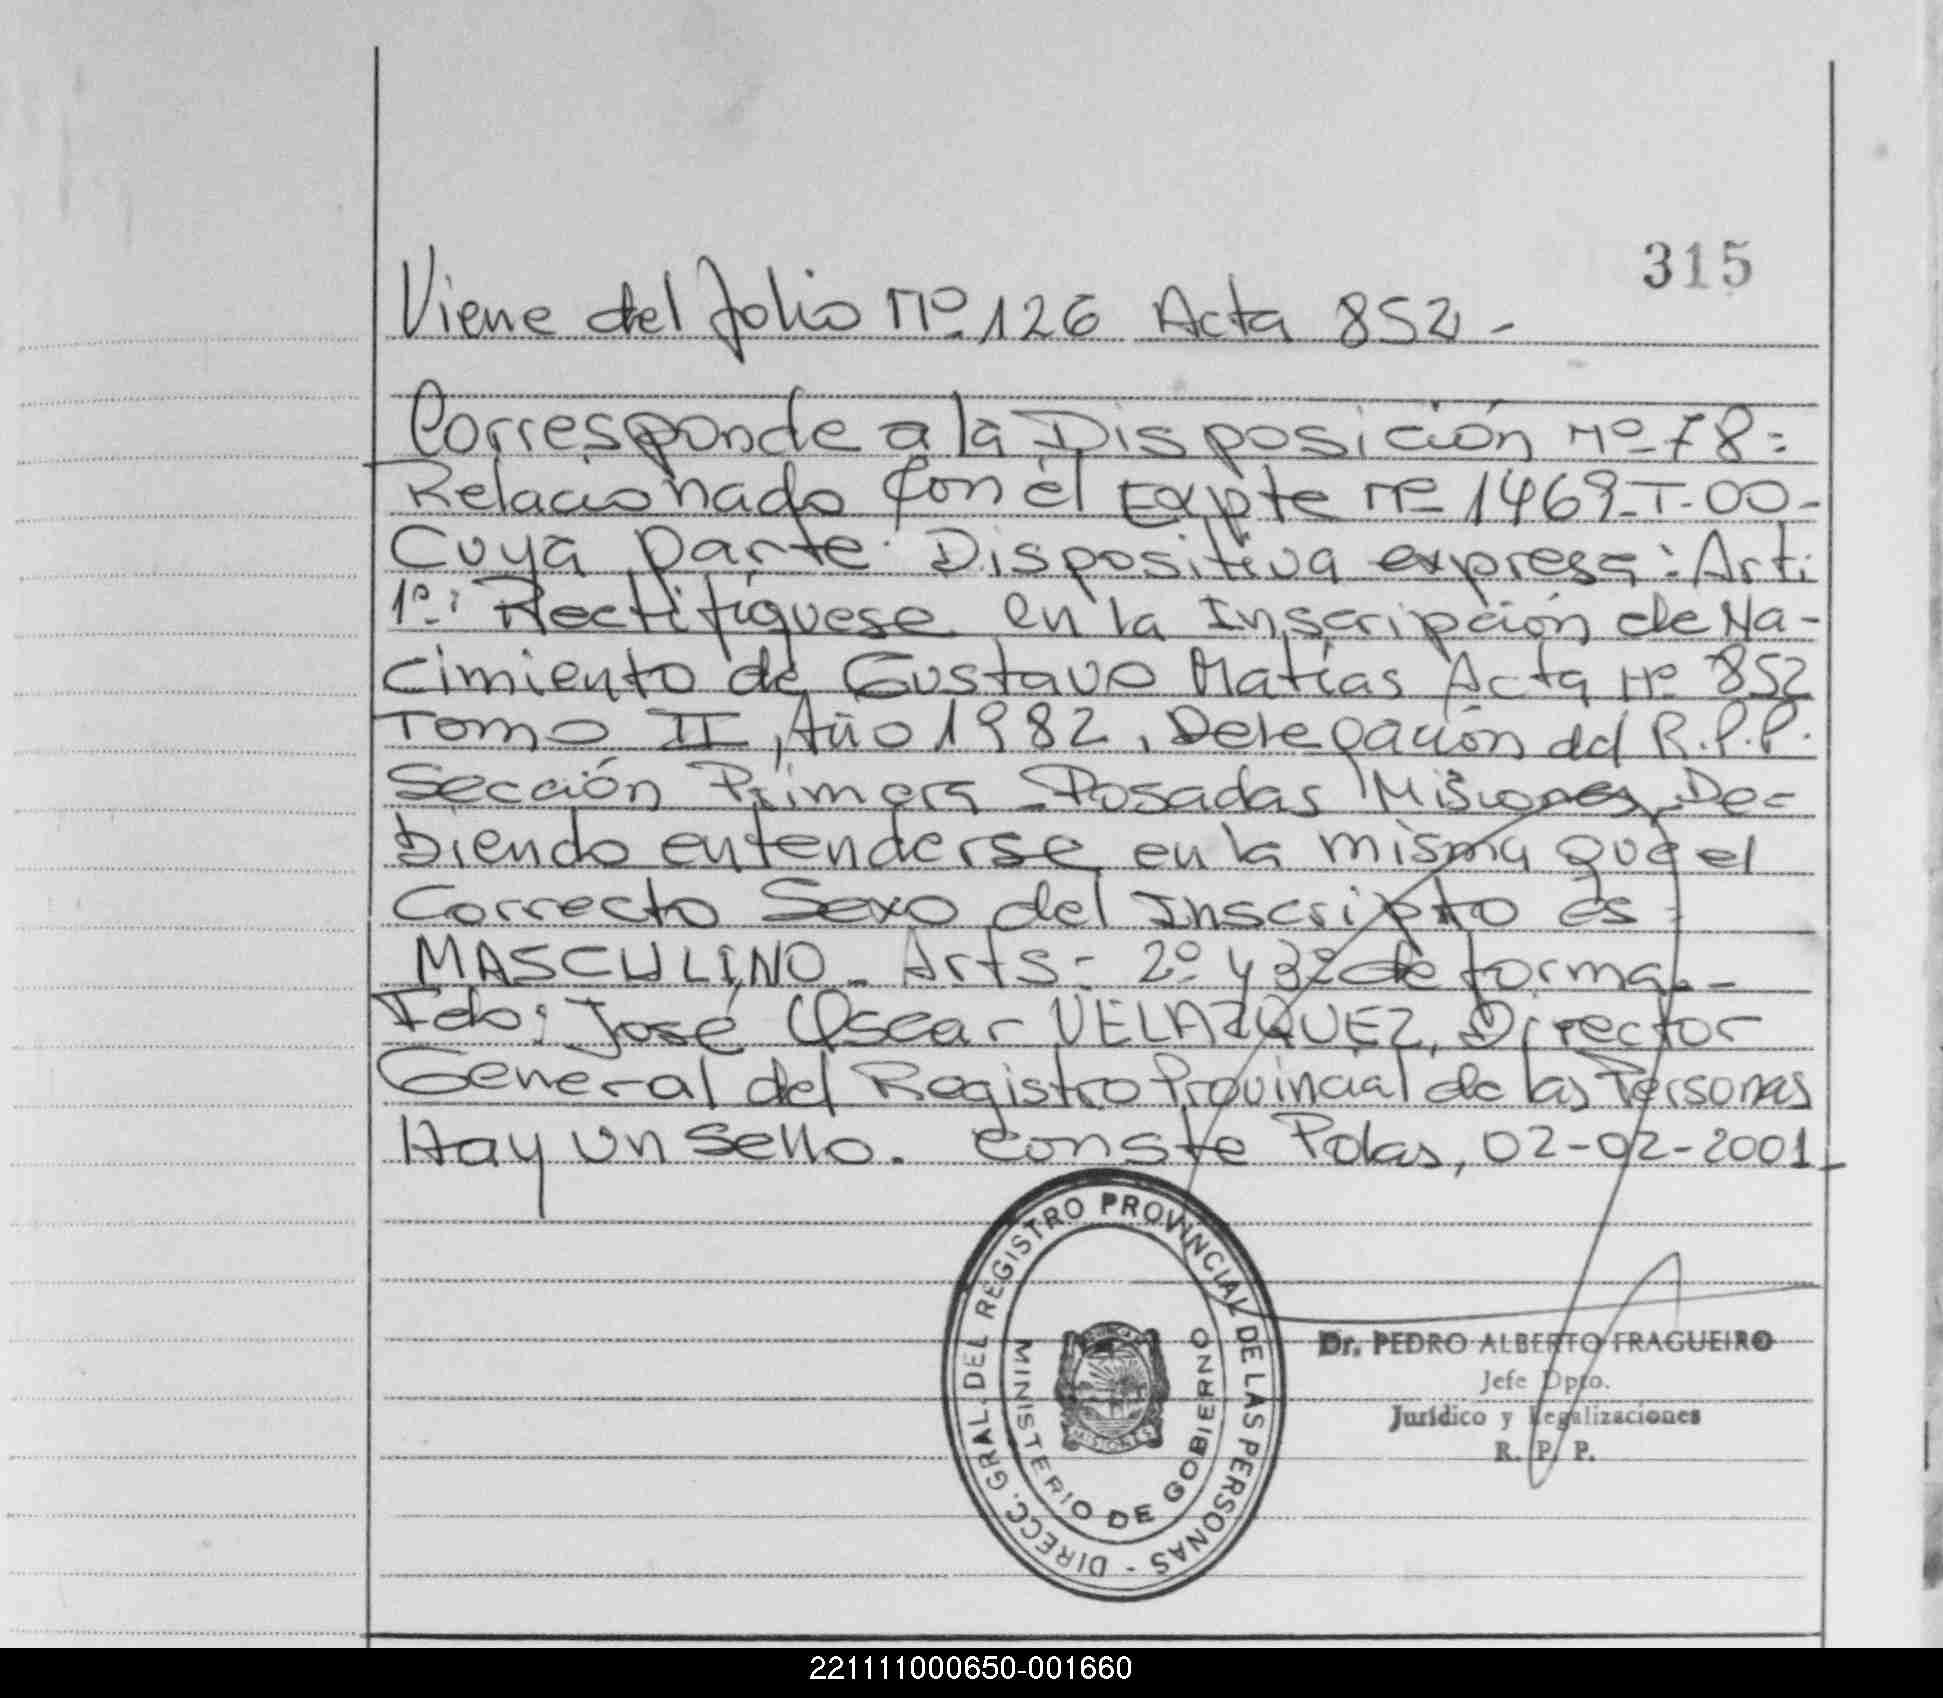 315
Viene del folio Nº 126 Acta 852 -
Corresponde a la Disposición Nº 78:
Relacionado Con el Expte Nº 1469-T-00-
Cuya parte Dispositiva expresa: Arti
1º: Rectifíquese en la Inscripción de Na-
cimiento de Gustavo Matías Acta Nº 852
Tomo II, Año 1982, Delegación del R.P.P.
Sección Primera Posadas Misiones, De-
biendo entenderse en la misma que el
Correcto Sexo del Inscripto es:
MASCULINO. Arts: 2º y 3º de forma. -
Fdo: José Oscar VELAZQUEZ, Director
General del Registro Provincial de las Personas
Hay un sello. Conste Pdas, 02-02-2001-
DIRECC. GRAL. DEL REGISTRO PROVINCIAL DE LAS PERSONAS -
MINISTERIO DE GOBIERNO
MISIONES
Dr. PEDRO ALBERTO FRAGUEIRO
Jefe Dpto.
Jurídico y Legalizaciones
R. P. P.
221111000650-001660